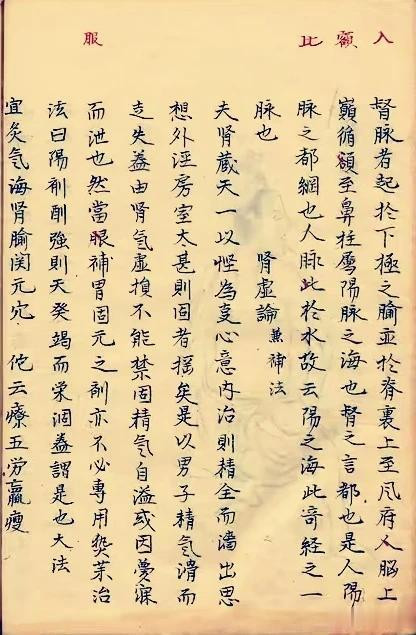 入
額
比
服
督脉者起於下極之腧並於脊裏上至凡府人脳上
巔循頟至鼻柱屬陽脉之海也督之言都也是人陽
脉之都綱也人脉此於水故云陽之海此奇經之一
脉也 肾虛論 兼補法
夫肾藏天一以慳為支心意内治則精全而濇出思
想外淫房室太甚則固者揺矣是以男子精氣滑而
走失葢由肾氣虛損不能禁固精氣自溢或因夢寐
而泄也然當眼補胃固元之剤亦不必專用治
法曰陽剤剛強則天癸竭而栄涸葢謂是也大法
宜灸氣海肾腧関元穴 佗云療五労羸瘦